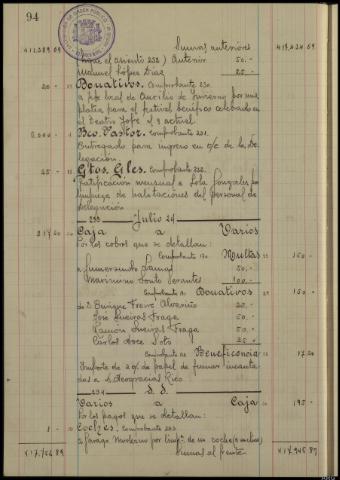 94
Sumas anteriores
411.389.69 413.424.69
(sigue el asiento 252) Anterior 50.-
Manuel López Díaz 25.-
20.- Donativos. Comprobante 230
a local de Auxilio de Invierno por una
platea para el festival benéfico celebrado en
el Teatro Jofre el 3 actual
Bco. Pastor. Comprobante 231.
Entregado para ingreso en c/c de la De-
legación
25.- Gtos. Gles. Comprobante 232.
Gratificación mensual a Lola González por
limpieza de habitaciones del personal de
delegación
253 Julio 24
Caja a Varios
Por los cobros que se detallan:
Comprobante Multas 150.-
a Gumersindo Lamas 50.-
Maximino Souto Serantes 100.-
Comprobante Donativos 150.-
de D. Enrique Freire Alvariño 20.-
José Sueiras Fraga 50.-
Ramón Sueiras Fraga 50.-
Carlos Soto 25.-
Comprobante Beneficencia 17.50
Importe de de papel de fumar incauta-
das a Deogracias Rico
254 d. d.
Varios a Caja 195.-
Por los pagos que se detallan:
Coches. Comprobante 233
a Garage Moderno por de un coche
Sumas al frente